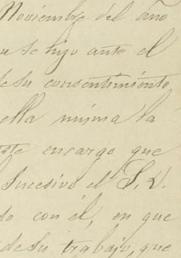 Noviembre del año
se hizo ante el
de su consentimiento
ella misma la
este encargo que
Sucesivo el S. D.
do con él, en que
de su trabajo, que